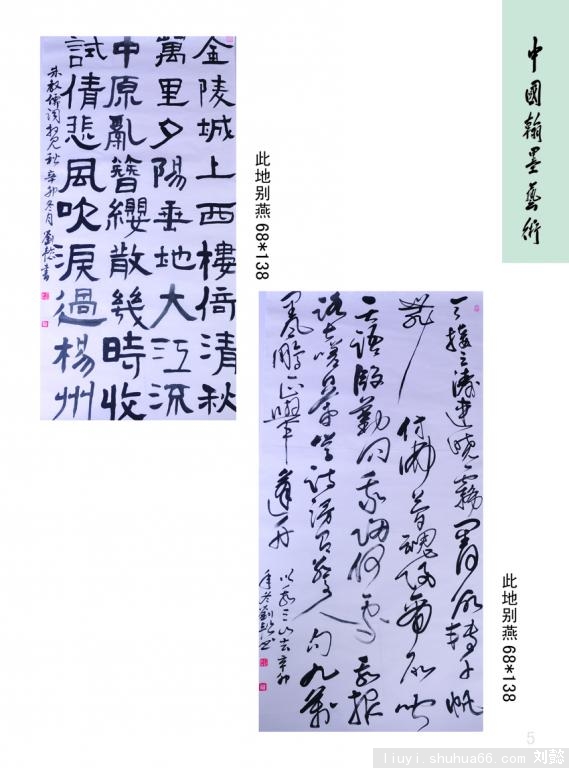 中國翰墨藝術
金陵城上西樓倚清秋
萬里夕陽垂地大江流
中原亂簪纓散幾時收
試倩悲風吹淚過楊州
朱敦儒詞相見秋 辛卯冬月 劉懿書
此地别燕 68*138
天接云濤連曉霧星河欲轉千帆
舞仿佛夢魂歸帝所聞
天語殷勤問我歸何處我報
路長嗟日暮學詩謾有驚人句九萬
里風鵬正舉蓬舟
吹取三山去 辛卯
年冬劉懿書
此地别燕 68*138
5
liuyi.shuhua66.com 刘懿